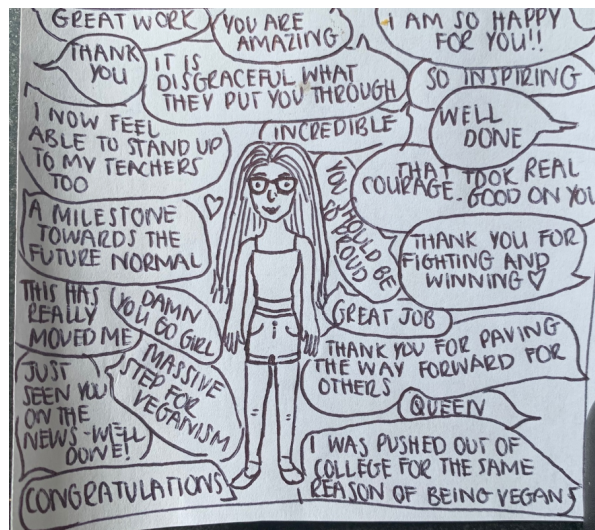 GREAT WORK
YOU ARE
AMAZING
I AM SO HAPPY
FOR YOU!!
THANK
YOU
IT IS
DISGRACEFUL WHAT
THEY PUT YOU THROUGH
SO INSPIRING
I NOW FEEL
ABLE TO STAND UP
TO MY TEACHERS
TOO
INCREDIBLE
WELL
DONE
THAT TOOK REAL
COURAGE. GOOD ON YOU
YOU SHOULD BE
SO PROUD
A MILESTONE
TOWARDS THE
FUTURE NORMAL
THANK YOU FOR
FIGHTING AND
WINNING ♡
THIS HAS
REALLY
MOVED ME
DAMN
YOU GO GIRL
GREAT JOB
THANK YOU FOR PAVING
THE WAY FORWARD FOR
OTHERS
JUST
SEEN YOU
ON THE
NEWS-WELL
DONE!
MASSIVE
STEP FOR
VEGANISM
QUEEN
I WAS PUSHED OUT OF
COLLEGE FOR THE SAME
REASON OF BEING VEGAN
CONGRATULATIONS